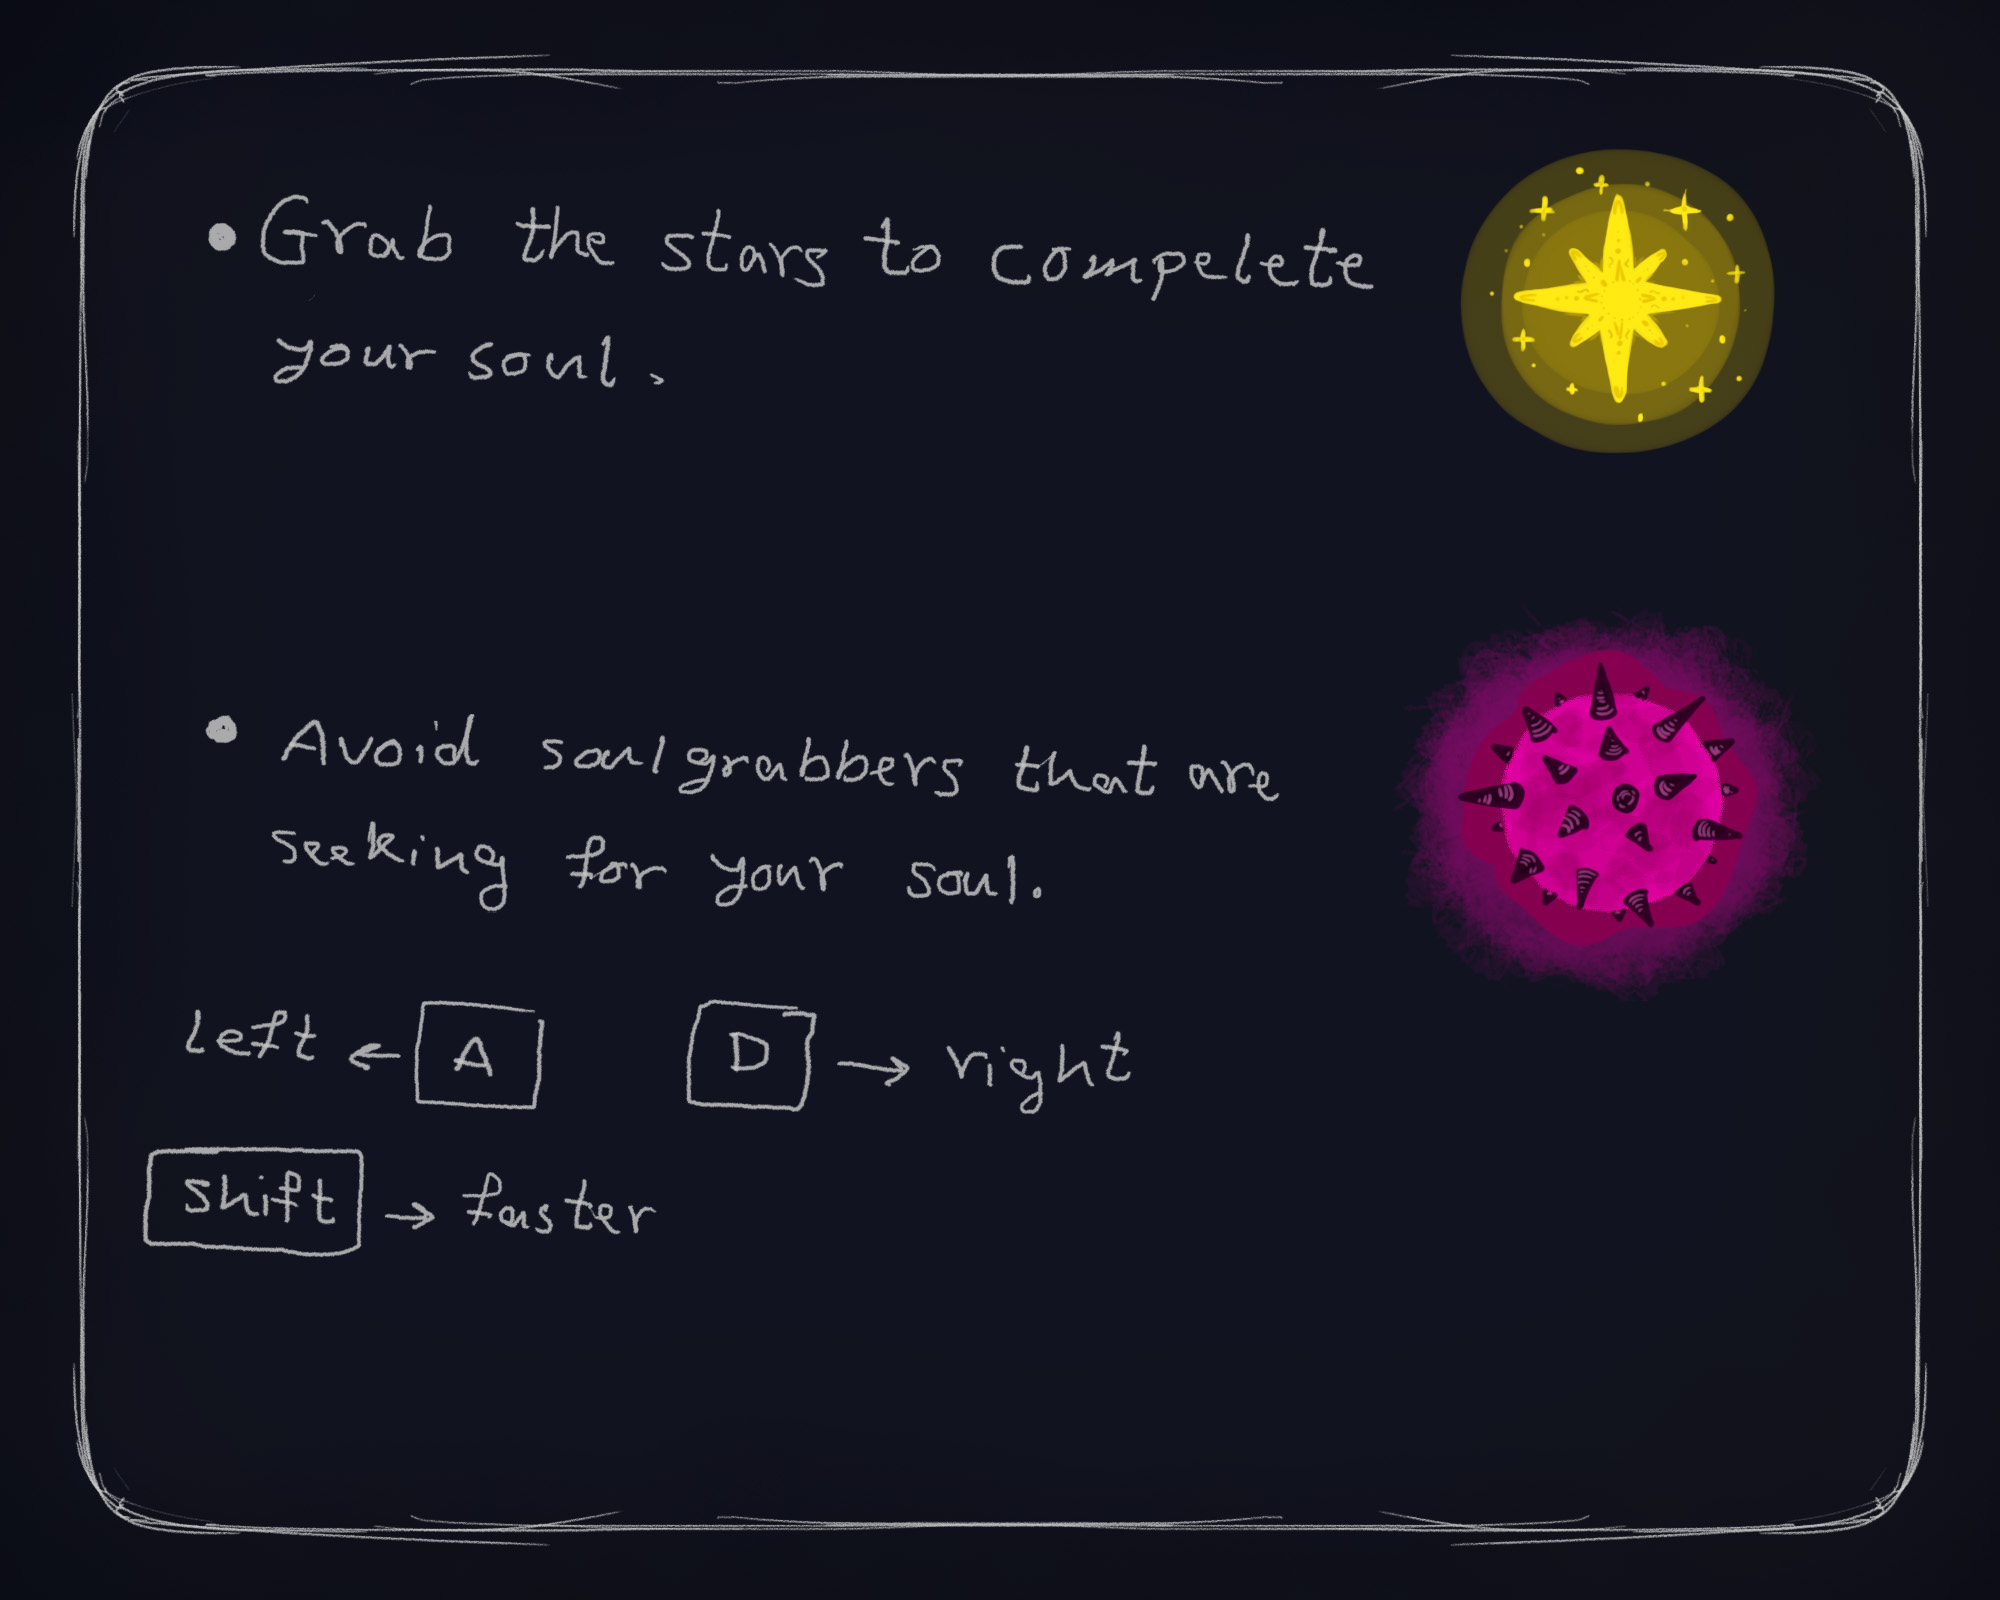 • Grab the stars to compelete
your soul.
• Avoid soulgrabbers that are
seeking for your soul.
left ← A D → right
shift → faster